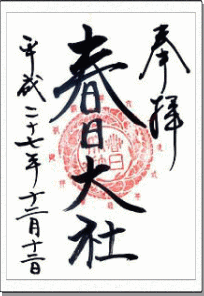 奉拝
春日大社
平成二十七年十二月十二日